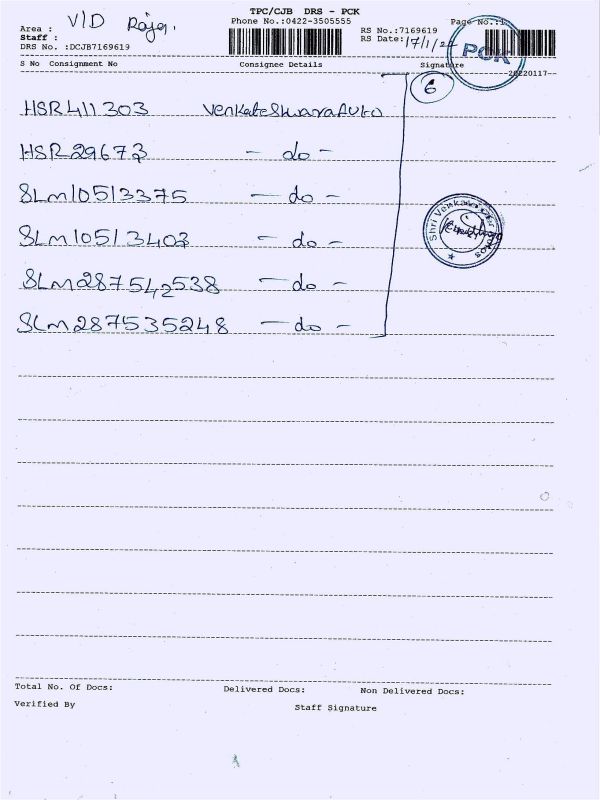 TPC/CJB DRS - PCK
Area : V/D Raja.
Phone No.:0422-3505555
Page No.:1
Staff :
RS No.:7169619
DRS No. :DCJB7169619
RS Date: 17/1/22
PCK
S No Consignment No Consignee Details Signature
-20220117-
6
HSR411303 Venkateshwara Auto
HSR29673 - do -
SLM10513375 - do -
SLM10513403 - do -
Shri Venkateshwar Autos
SLM287542538 - do -
SLM287535248 - do -
Total No. Of Docs: Delivered Docs: Non Delivered Docs:
Verified By Staff Signature